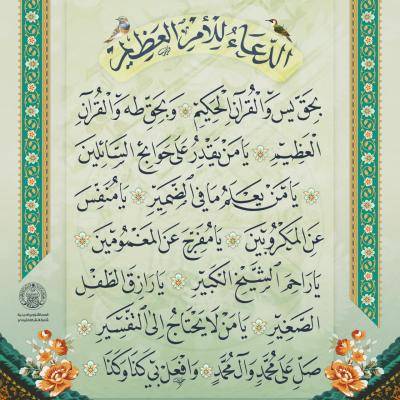 الدُّعَاءُ لِلْأَمْرِ الْعَظِيمِ
بِحَقِّ يس وَالْقُرْآنِ الْحَكِيمِ وَبِحَقِّ طه وَالْقُرْآنِ
الْعَظِيمِ يَا مَنْ يَقْدِرُ عَلَى حَوَائِجِ السَّائِلِينَ
يَا مَنْ يَعْلَمُ مَا فِي الضَّمِيرِ يَا مُنَفِّسَ
عَنِ الْمَكْرُوبِينَ يَا مُفَرِّجَ عَنِ الْمَغْمُومِينَ
يَا رَاحِمَ الشَّيْخِ الْكَبِيرِ يَا رَازِقَ الطِّفْلِ
الصَّغِيرِ يَا مَنْ لَا يَحْتَاجُ إِلَى التَّفْسِيرِ
صَلِّ عَلَى مُحَمَّدٍ وَآلِ مُحَمَّدٍ وَافْعَلْ بِي كَذَا وَكَذَا